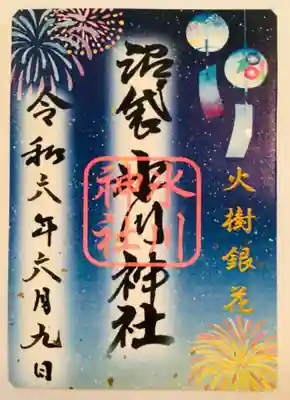 火樹銀花
沼袋氷川神社
氷川
神社
令和六年六月九日